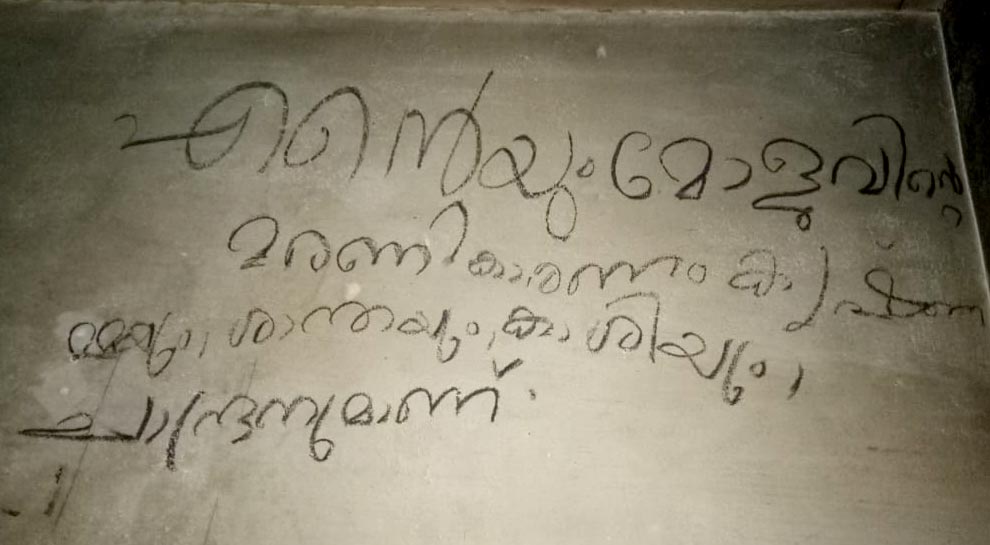 എന്റെയും മോളുവിന്റെ
മരണ കാരണം കൃഷ്ണ
മ്മയും, ശാന്തയും, കാശിയും,
ചന്ദ്രനുമാണ്.